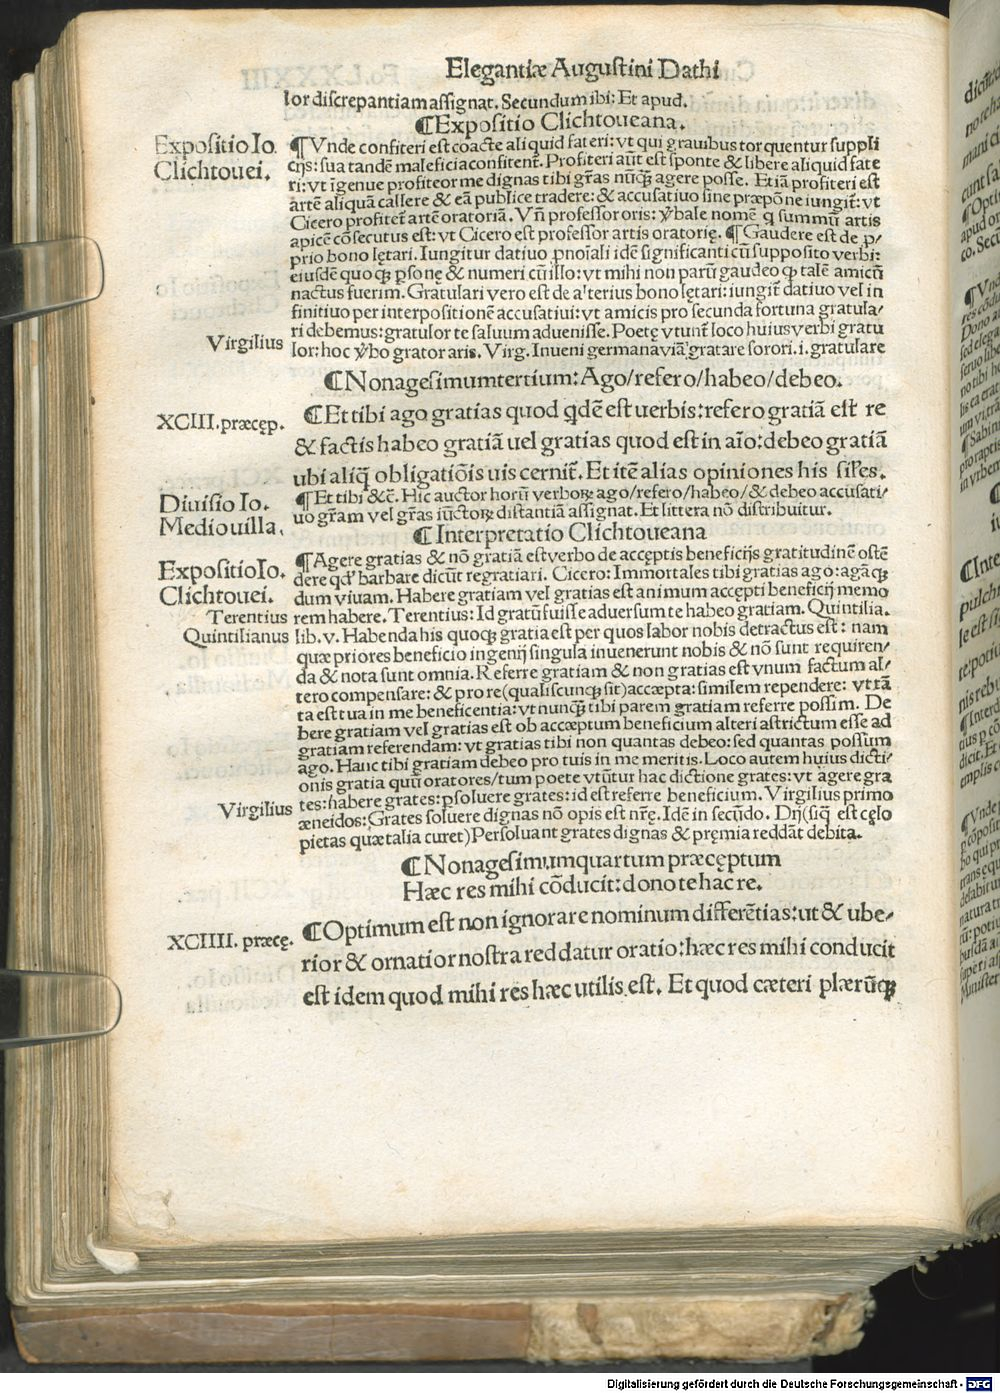 Elegantiæ Augustini Dathi
lor discrepantiam assignat. Secundum ibi: Et apud.
¶Expositio Clichtoueana.
Expositio Io.
Clichtouei.
¶Vnde confiteri est coacte aliquid fateri: vt qui grauibus torquentur suppli
cijs: sua tandē maleficia confitent̄. Profiteri aūt est sponte & libere aliquid fate
ri: vt īgenue profiteor me dignas tibi gr̄as nūq̄ agere posse. Etiā profiteri est
artē aliquā callere & eā publice tradere: & accusatiuo sine præpōne iungit̄: vt
Cicero profitet̄ artē oratoriā. Vn̄ professor oris: v̄bale nomē q summū artis
apicē cōsecutus est: vt Cicero est professor artis oratorię. ¶Gaudere est de ꝓ/
prio bono lętari. Iungitur datiuo pnoīali idē significanti cū supposito verbi:
eiusdē quoqꝫ ꝑsonę & numeri cū illo: vt mihi non parū gaudeo ꝙ talē amicū
nactus fuerim. Gratulari vero est de alterius bono lętari: iungit̄ datiuo vel in
finitiuo per interpositionē accusatiui: vt amicis pro secunda fortuna gratula/
ri debemus: gratulor te saluum aduenisse. Poetę vtunt̄ loco huius verbi gratu
Virgilius
lor: hoc v̄bo grator aris. Virg. Inueni germana viā gratare sorori. i. gratulare
¶Nonagesimumtertium: Ago/refero/habeo/debeo.
XCIII. præcęp.
¶Et tibi ago gratias quod qdē est uerbis: refero gratiā est re
& factis habeo gratiā uel gratias quod est in aīo: debeo gratiā
ubi aliq̄ obligatiōis uis cernit̄. Et itē alias opiniones his siles.
Diuisio Io.
Mediouilla.
¶Et tibi &c̄. Hic auctor horū verborꝝ ago/refero/habeo/& debeo accusati/
uo gr̄am vel gr̄as iūctorꝝ distantiā assignat. Et littera nō distribuitur.
¶Interpretatio Clichtoueana
Expositio Io.
Clichtouei.
¶Agere gratias & nō gratiā est verbo de acceptis beneficijs gratitudinē ostē
dere qd' barbare dicūt regratiari. Cicero: Immortales tibi gratias ago: agāqꝫ
dum viuam. Habere gratiam vel gratias est animum accępti beneficij memo
Terentius
rem habere. Terentius: Id gratū fuisse aduersum te habeo gratiam. Quintilia.
Quintilianus
lib. v. Habenda his quoqꝫ gratia est per quos labor nobis detractus est: nam
quæ priores beneficio ingenij singula inuenerunt nobis & nō sunt requiren/
da & nota sunt omnia. Referre gratiam & non gratias est vnum factum al/
tero compensare: & pro re (qualiscunqꝫ sit) accæpta: similem rependere: vt tā
ta est tua in me beneficentia: vt nunqꝫ tibi parem gratiam referre possim. De
bere gratiam vel gratias est ob accæptum beneficium alteri astrictum esse ad
gratiam referendam: vt gratias tibi non quantas debeo: sed quantas possum
ago. Hanc tibi gratiam debeo pro tuis in me meritis. Loco autem huius dicti/
onis gratia quū oratores/tum poete vtūtur hac dictione grates: vt agere gra
tes: habere grates: ꝑsoluere grates: id est referre beneficium. Virgilius primo
Virgilius
æneidos: Grates soluere dignas nō opis est nr̄ę. Idē in secūdo. Dij (siq̄ est cęlo
pietas quæ talia curet) Persoluant grates dignas & pręmia reddāt debita.
¶Nonagesimumquartum præcęptum
Hæc res mihi cōducit: dono te hac re.
XCIIII. præcę.
¶Optimum est non ignorare nominum differētias: ut & ube/
rior & ornatior nostra reddatur oratio: hæc res mihi conducit
est idem quod mihi res hæc utilis est. Et quod cæteri plærūqꝫ
Digitalisierung gefördert durch die Deutsche Forschungsgemeinschaft - DFG